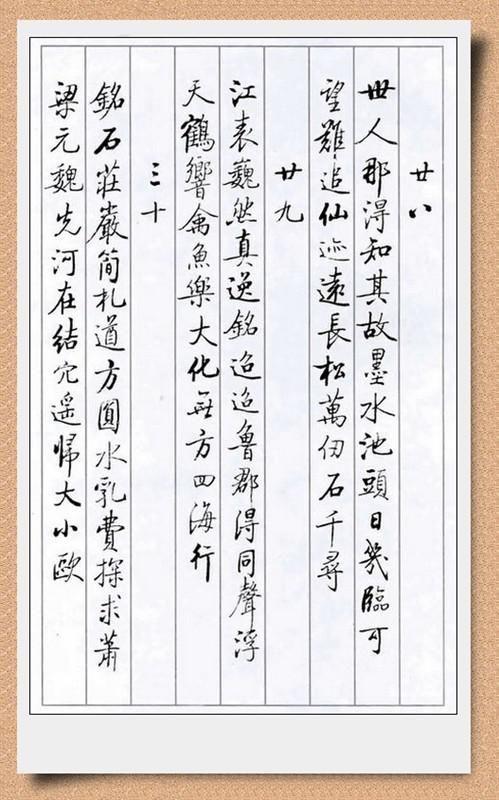 廿八
世人那得知其故墨水池頭日幾臨可
望難追仙迹遠長松萬仞石千尋
廿九
江表巍然真逸銘迢迢魯郡得同聲浮
天鶴響禽魚樂大化無方四海行
三十
銘石莊嚴簡札道方圓水乳費探求蕭
梁元魏先河在結穴遥歸大小歐